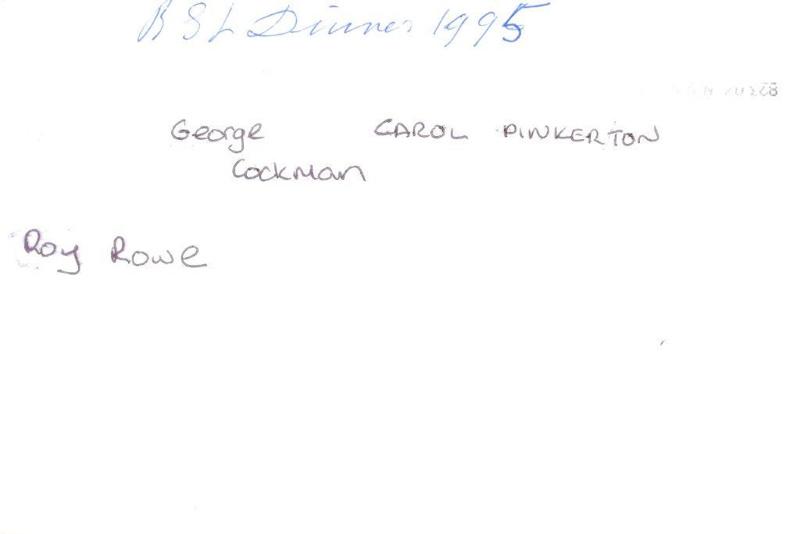 BSL Dinner 1995
George CAROL PINKERTON
Cockman
Roy Rowe